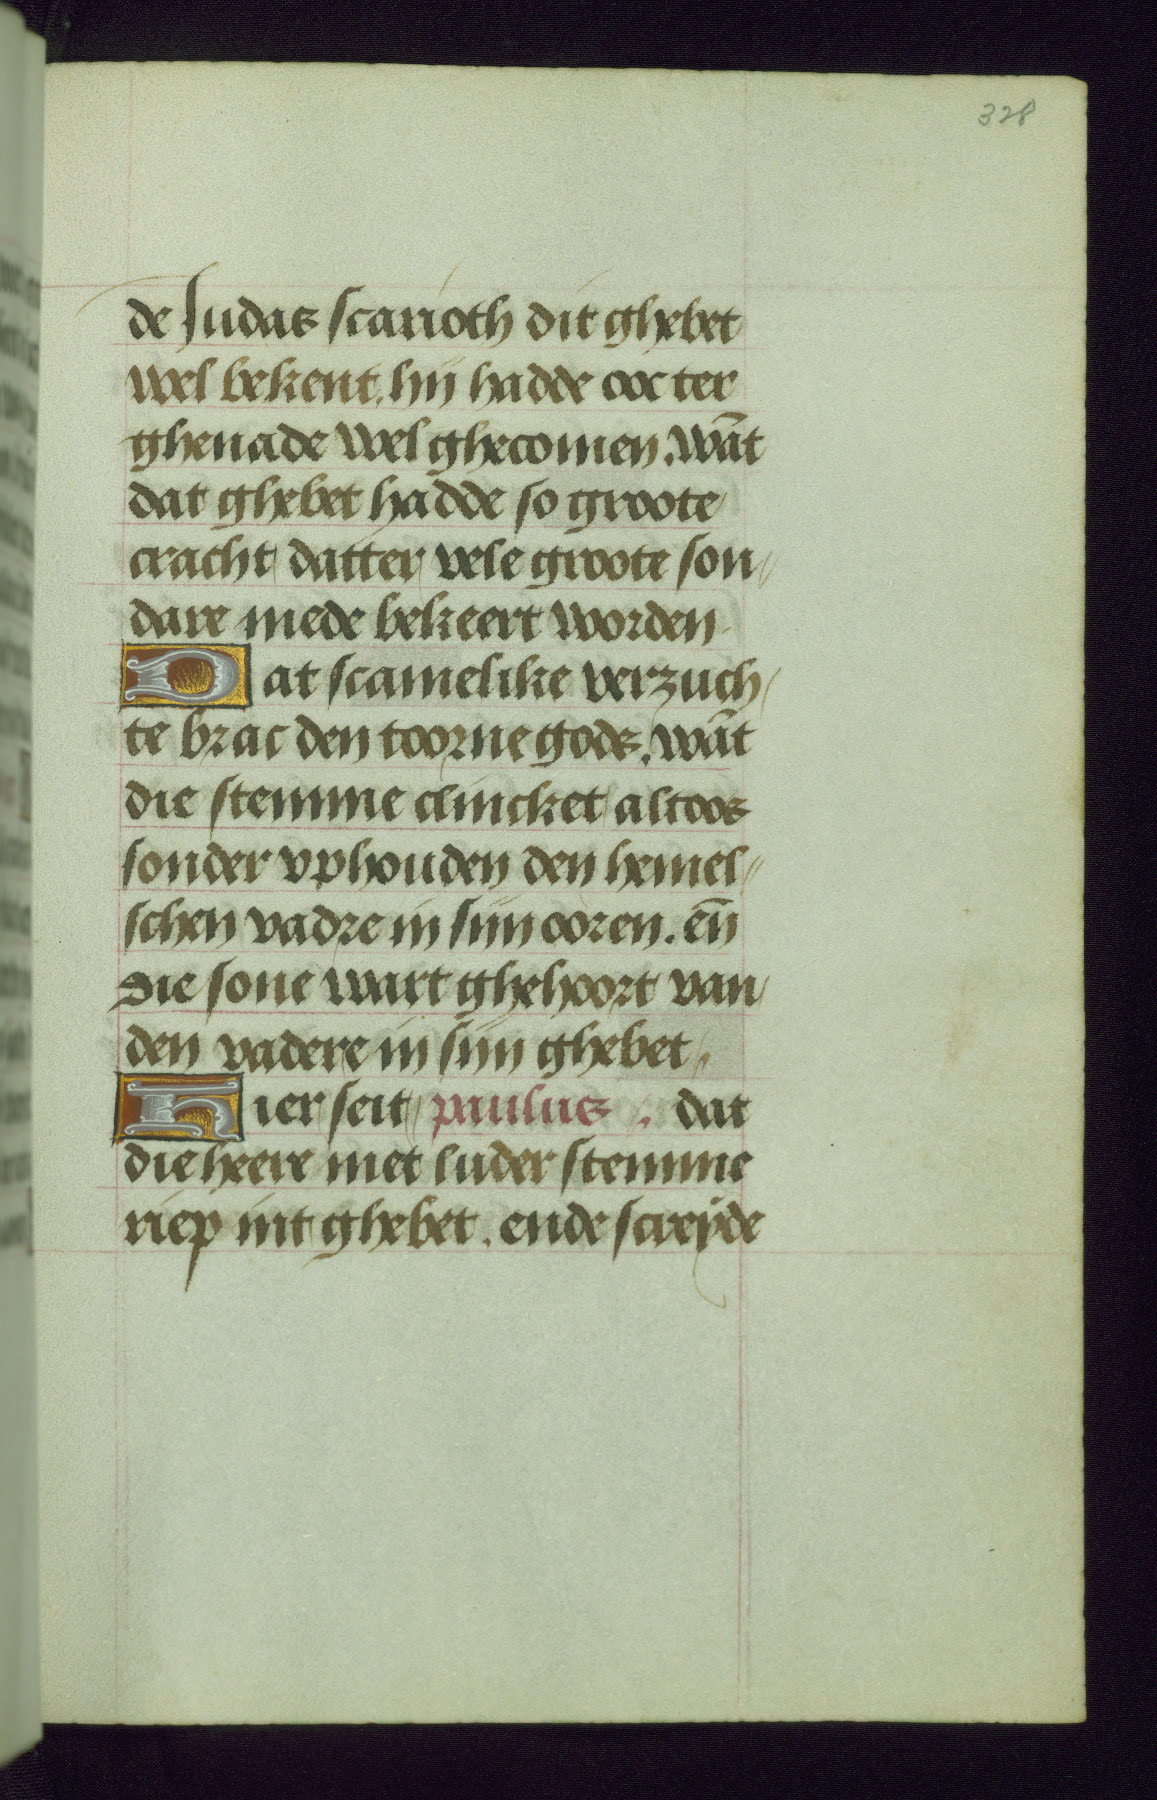 328
de Judas scarioth dit ghebet
wel bekent. hij hadde ooc ter
ghenade wel ghecomen. wāt
dat ghebet hadde so groote
cracht datter vele groote son//
dare mede bekeert worden
Dat scamelike verzuch/
te brac den toorne gods. wāt
die stemme clincket altoos
sonder vphouden den hemel//
schen vadre in sijn ooren. en̄
Die sone wart ghehoort van/
den vadere in sijn ghebet.
Hier seit paulus. dat
die heere met luder stemme
riep int ghebet. ende screyde